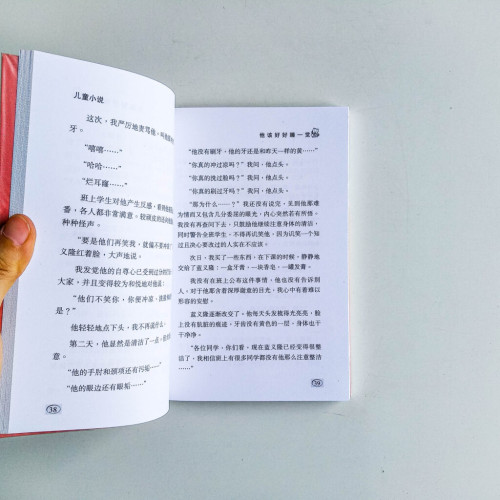 儿童小说
这次，我严厉地责骂他。
牙。
“嘻嘻……”
“哈哈……”
“烂耳窿……”
班上学生对他产生反感，
番，各人都非常满意。较顽皮的还
种种怪声。
“要是他们再笑我，就偏不要冲
义隆红着脸，大声地说。
我发觉他的自尊心已受到过分的
大家，并且变得较为和悦地对他说：
“他们不笑你，你便冲凉，洗
是？”
他轻轻地点下头，我不再说什么。
第二天，他显然是清洁了一点，
去。
“他的手肘和颈项还有污垢……”
“他的眼边还有眼垢……”
38
他该好好睡一觉
“他没有刷牙，他的牙还是和昨天一样的黄……”
“你真的冲过凉吗？”我问，他点头。
“你真的洗过脸吗？”我问，他点头。
“你真的刷过牙吗？”我问，他点头。
“那为什么……？”我还没有说完，见到他那难
为情而又包含几分委屈的眼光，内心突然若有所悟。
我没有再查问下去，只鼓励他继续注意身体的清洁，
同时警告全班学生，不得再讥笑他，因为讥笑一个知
过且决心要改过的人实在不应该。
次日，我买了一些东西，在下课的时候，静静地
交给了蓝义隆：一盒牙膏，一块香皂，一罐发膏。
我没有在班上公布这件事情，他也没有告诉别
人。对于他那含着深厚蕴意的目光，我心中有着难以
形容的安慰。
蓝义隆逐渐改变了。他每天头发梳得光亮亮，脸
上没有肮脏的痕迹，牙齿没有黄色的一层，身体也干
干净净。
“各位同学，你们看，现在蓝义隆已经变得很整
洁了，我相信班上有很多同学都没有他那么注意整洁
……”
39